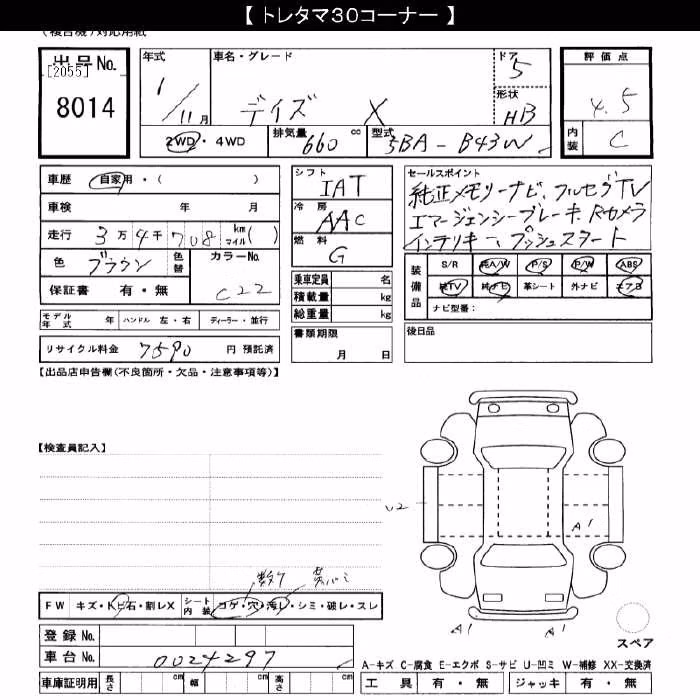 【 トレタマ30コーナー 】
(複合機)対応用紙
出品No.
[2055]
8014
年式
1/11月
車名・グレード
デイズ X
ドア
5
形状
HB
評価点
4.5
内装
C
2WD・4WD
排気量 660 cc
型式 5BA-B43W
車歴 自家用・( )
車検 年 月
走行 3万4千708 km マイル( )
色 ブラウン 色替
カラーNo. C22
保証書 有・無
シフト
IAT
冷房
AAC
燃料
G
乗車定員 名
積載量 kg
総重量 kg
セールスポイント
純正メモリーナビ、フルセグTV
エマージェンシーブレーキ、Rカメラ
インテリキー、プッシュスタート
装備品
S/R 純A/W P/S P/W ABS
純TV 純ナビ 革シート 外ナビ エアB
ナビ型番:
モデル年式 年 ハンドル 左・右 ディーラー・並行
リサイクル料金 7590 円 預託済
書類期限
月 日
後日品
【出品店申告欄(不良箇所・欠品・注意事項等)】
【検査員記入】
U2
A1
A1 A1
FW キズ・Kヒ石・割レX シート内装 コゲ・穴・汚レ・シミ・破レ・スレ
登録No.
車台No. 0024297
車庫証明用 長さ cm 幅 cm 高さ cm
スペア
A-キズ C-腐食 E-エクボ S-サビ U-凹ミ W-補修 XX-交換済
工具 有・無 ジャッキ 有・無